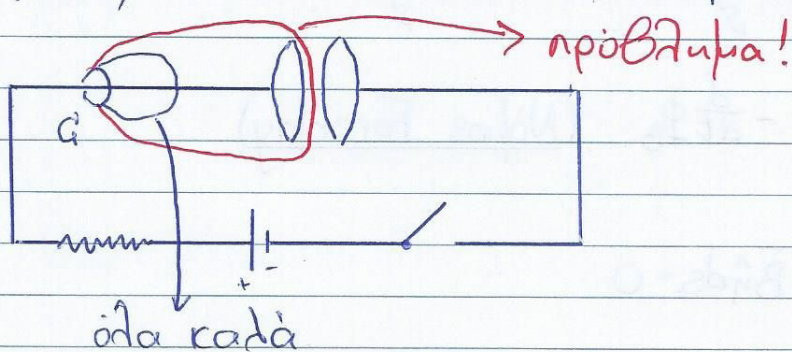 πρόβλημα!
G
+ -
όλα καλά